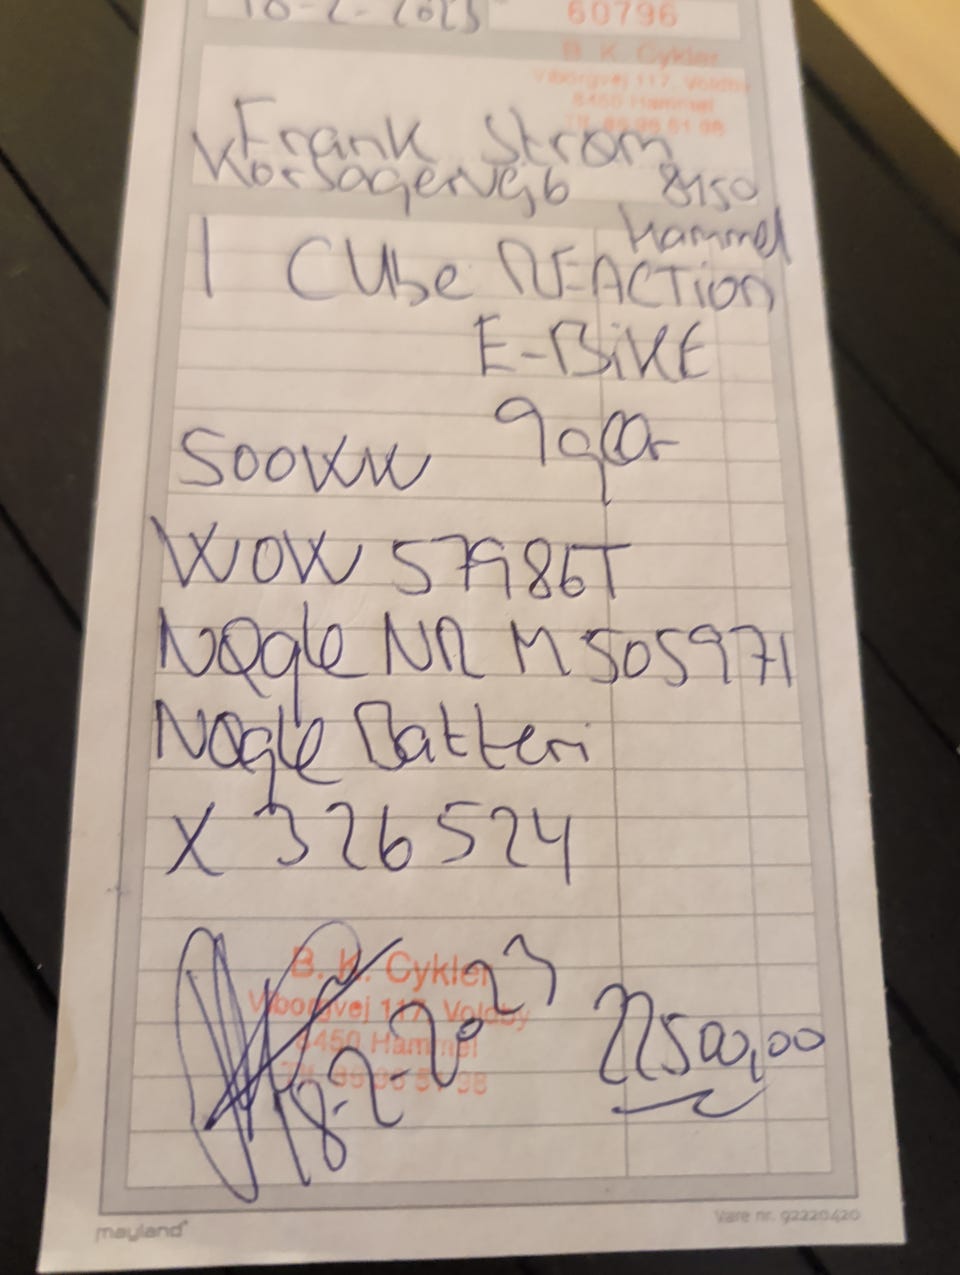 18-2-2023
60796
B. K. Cykler
Viborgvej 117, Voldby
8450 Hammel
Tlf. 86 96 51 98
Frank Strøm
8450
Hammel
1 CUBE REACTION
E-BiKE
500WW 9gear
WOW 57986T
NØgle NR M505971
NØgle Batteri
X 326524
B. K. Cykler
Viborgvej 117, Voldby
8450 Hammel
Tlf. 86 96 51 98
18-2-2023
22500,00
mayland
Vare nr. 92220420